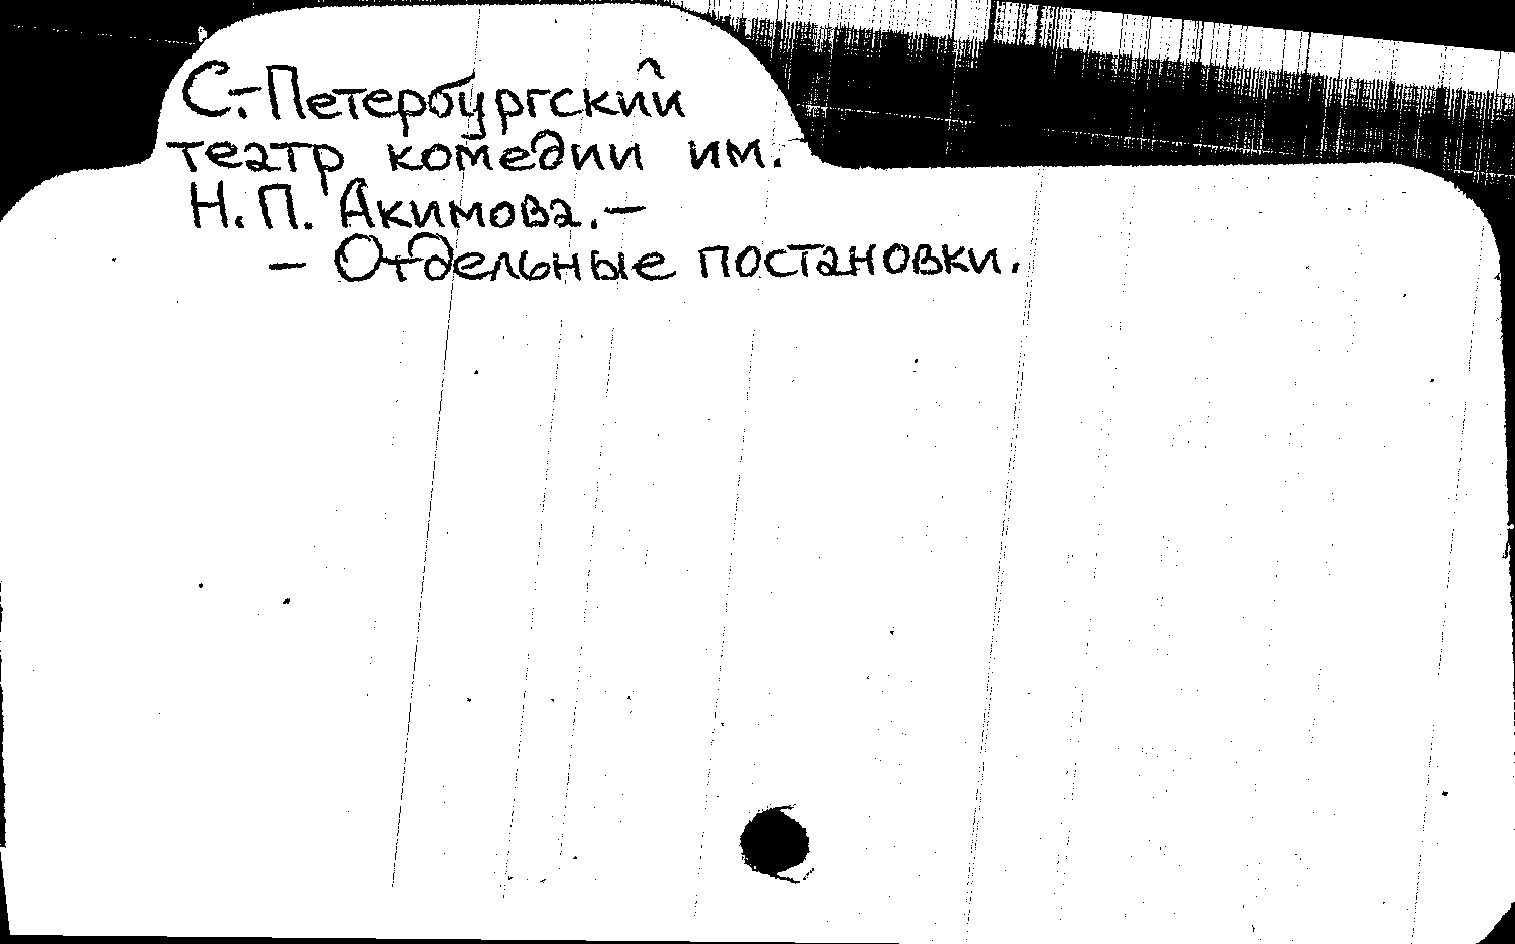 С.-Петербургский
театр комедии им.
Н. П. Акимова. —
— Отдельные постановки.